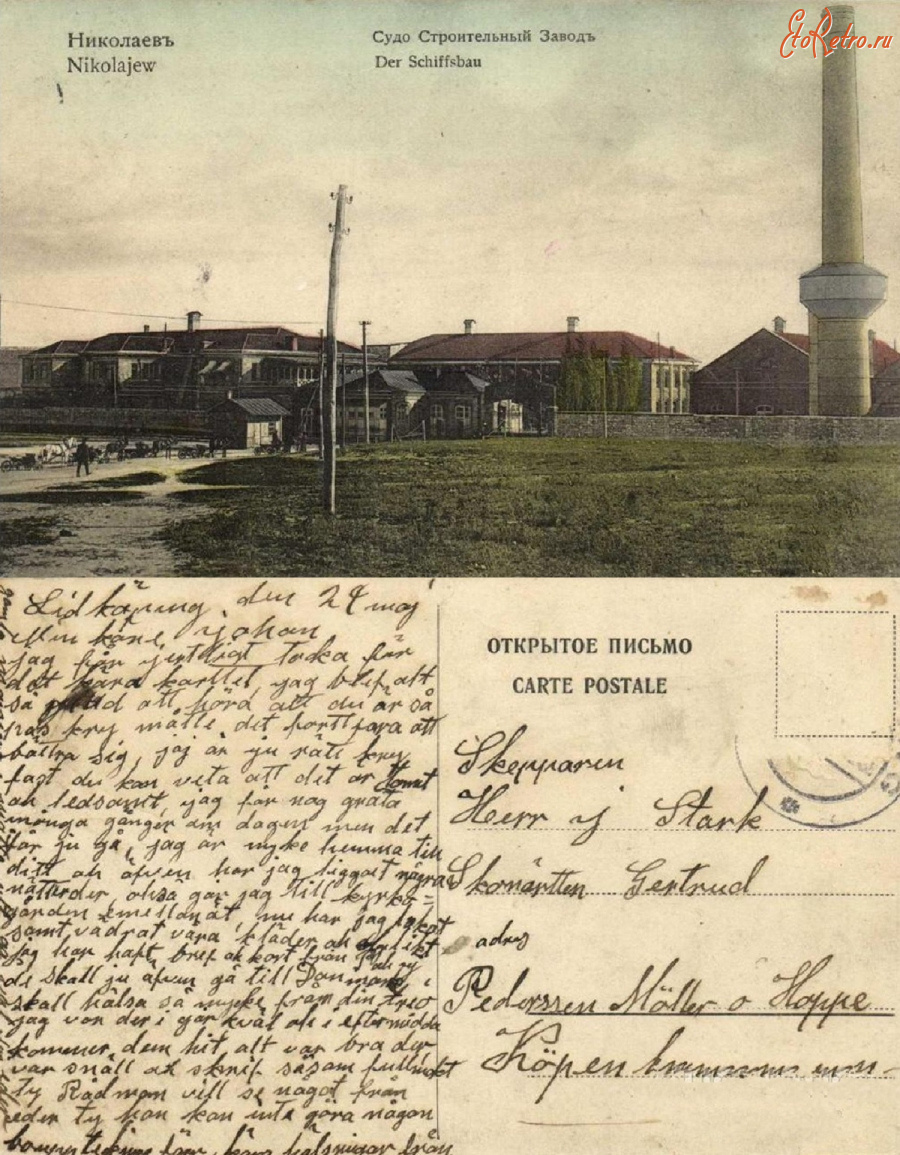 Николаевъ
Nikolajew
Судо Строительный Заводъ
Der Schiffsbau
EtoRetro.ru
Lidköping den 24 maj
Min käre johan
jag får jertligt tacka för
det kära kortet, jag blef alt
så glad att höra att du är så
pas kry måtte det fortfara att
bättra sig, jag är ju rätt kry
fast du kan veta att det är tomt
ok ledsamt, jag får nog gråta
många gånger om dagen men det
får ju gå, jag är myke hemma till
ditt ok äfven har jag liggat några
nätter der, okså går jag till kyrko=
gården emellanåt, nu har jag
samt vädrat våra kläder ok
jag har haft bref ok kort från
de skall ju äfven gå till Danmark,
skall hälsa så myke från din
jag var der i går kväl ok i eftermidda
kommer dem hit, alt var bra der
var snäll ok skrif såsom
ty Rådman vill se något från
eder ty han kan inte göra någon
hälsningar från
ОТКРЫТОЕ ПИСЬМО
CARTE POSTALE
Skepparen
Herr j Stark
Skonärtten Gertrud
adres
Pederssen Möller o Hoppe